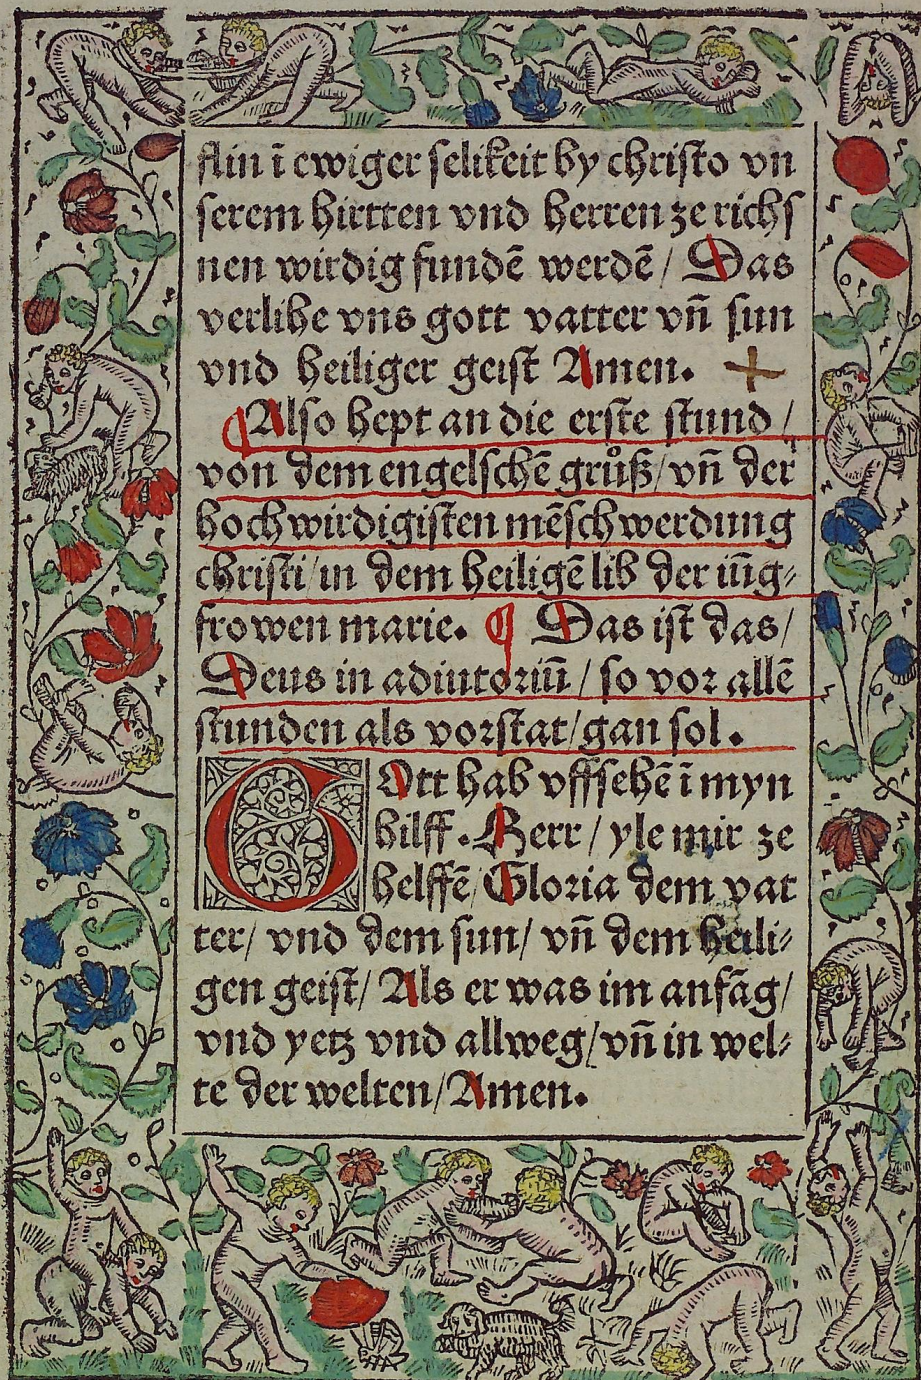 ſlin ī ewiger ſelikeit by chriſto vn
ſerem hirtten vnd herren ze richſ
nen wirdig fundē werdē/ Das
verlihe vns gott vatter vn̄ ſun
vnd heiliger geiſt Amen.
¶Alſo hept an die erſte ſtund/
von dem engelſchē gruͦß/vn̄ der
hochwirdigiſten mēſchwerdung
chriſti/in dem heiligē lib der iūg⸗
frowen marie. ¶ Das iſt das/
Deus in adiutoriū/ſo vor allē
ſtunden als vorſtat/gan ſol.
GOtt hab vffſehē ī myn
hilff.Herr/yle mir ze
helffē/Gloria dem vat
ter/ vnd dem ſun/ vn̄ dem heili⸗
gen geiſt/Als er was im anfāg/
vnd yetz vnd allweg/vn̄ in wel⸗
te der welten/Amen.